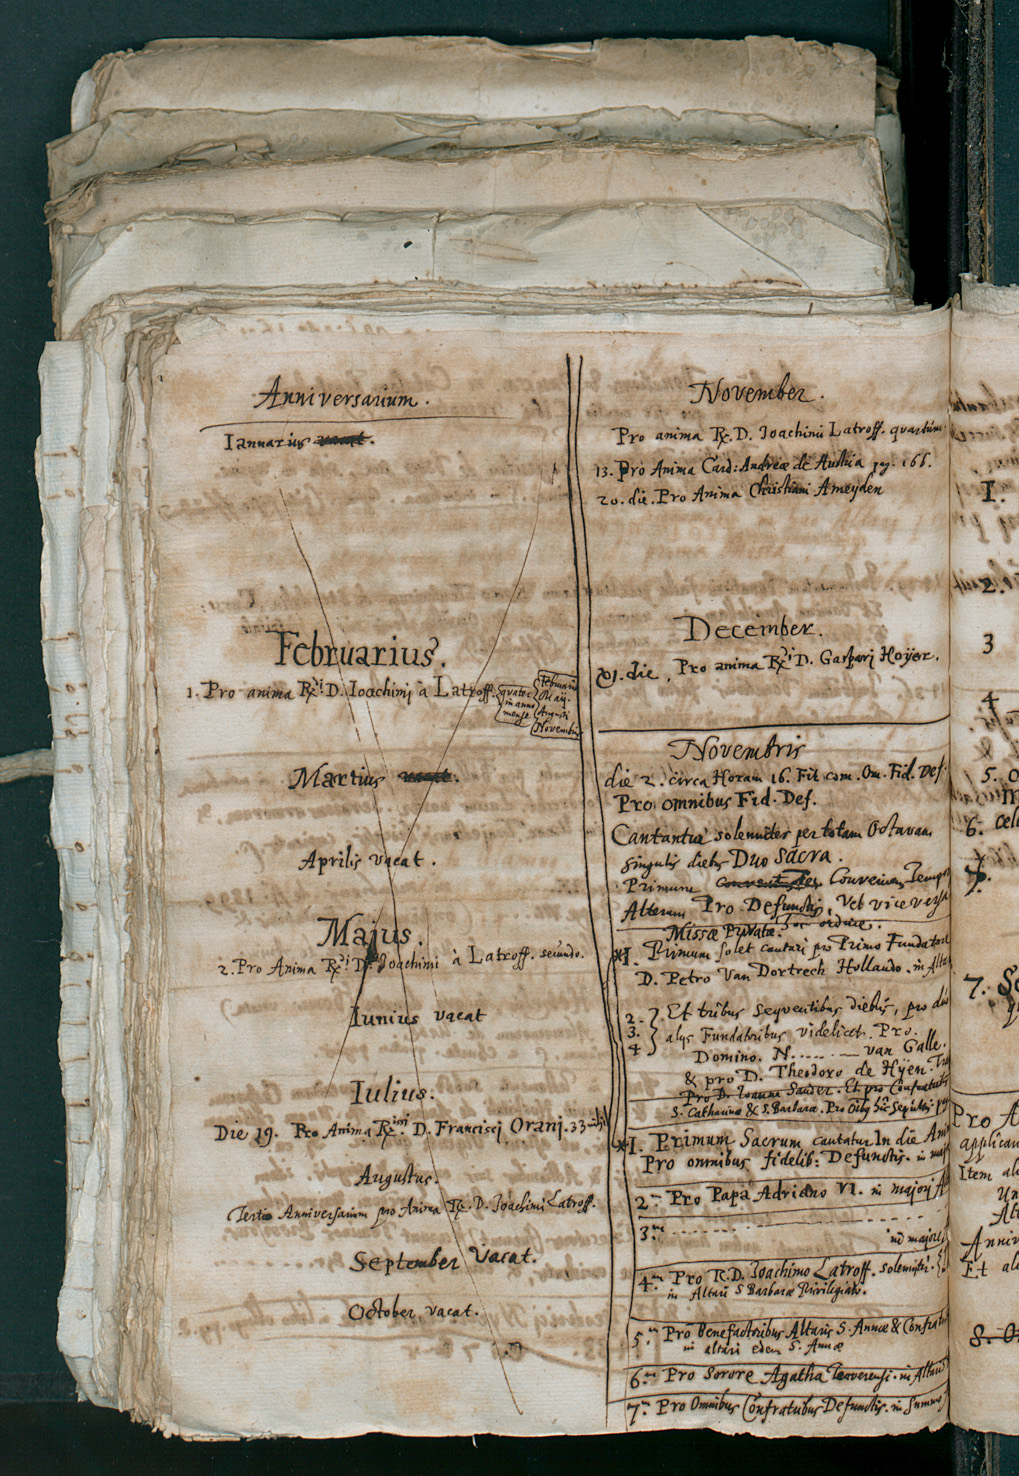 Anniversarium.
Ianuarius vacat.
Februarius.
1. Pro anima R.di D. Ioachimi à Latroff. quater in anno mense
Februarii
Maij.
Augusti
Novembris
Martius vacat.
Aprilis vacat.
Majus.
2. Pro Anima R.di D. Joachimi à Latroff. secundo.
Iunius vacat
Iulius.
Die 19. Pro Anima R.mi D. Francisci Oranj. 33
Augustus.
Tertio Anniversarium pro Anima R. D. Joachimi Latroff.
September Vacat.
October vacat.
November.
Pro anima R. D. Ioachimi Latroff. quartum
13. Pro Anima Card: Andreæ de Austria pag. 166.
20. die. Pro Anima Christiani Ameyden
December.
21. die, Pro anima R.di D. Gasparj Hoyer.
Novembris
die 2. circa Horam 16. Fit com. Om. Fid. Def.
Pro omnibus Fid. Def.
Cantantur solemniter per totam Octavam
singulis diebus Duo Sacra.
Primum Conveniens Tempori
Alterum Pro Defunctis, Vel vice versa
Missæ Privatæ: hoc ordine.
*I. Primum solet cantari pro Primo Fundatore
D. Petro Van Dortrech Hollando. in Altari
2. 3. 4 Et tribus sequentibus diebus, pro
alijs Fundatoribus videlicet. Pro.
Domino. N. van Galle.
& pro D. Theodoro de Hÿen.
Pro D. Ioanne Sander. Et pro Confratribus
S. Catharinæ & S. Barbaræ. Pro Oibus hic Sepultis.
*I. Primum Sacrum cantatur In die
Pro omnibus fidelib: Defunctis. in maj
2.m Pro Papa Adriano VI. in majori
3.m in majori
4.m Pro R.D. Joachimo Latroff. solemniter.
in Altari S Barbaræ Privilegiato.
5.m Pro Benefactoribus Altaris S. Annæ & Confratribus
in altari eodem S. Annæ
6.m Pro Sorore Agatha Traverensi. in Altari
7.m Pro Omnibus Confratribus Defunctis. in Summo
I.
2.
3
4
5.
6.
7.
Pro
Item
Et
8.